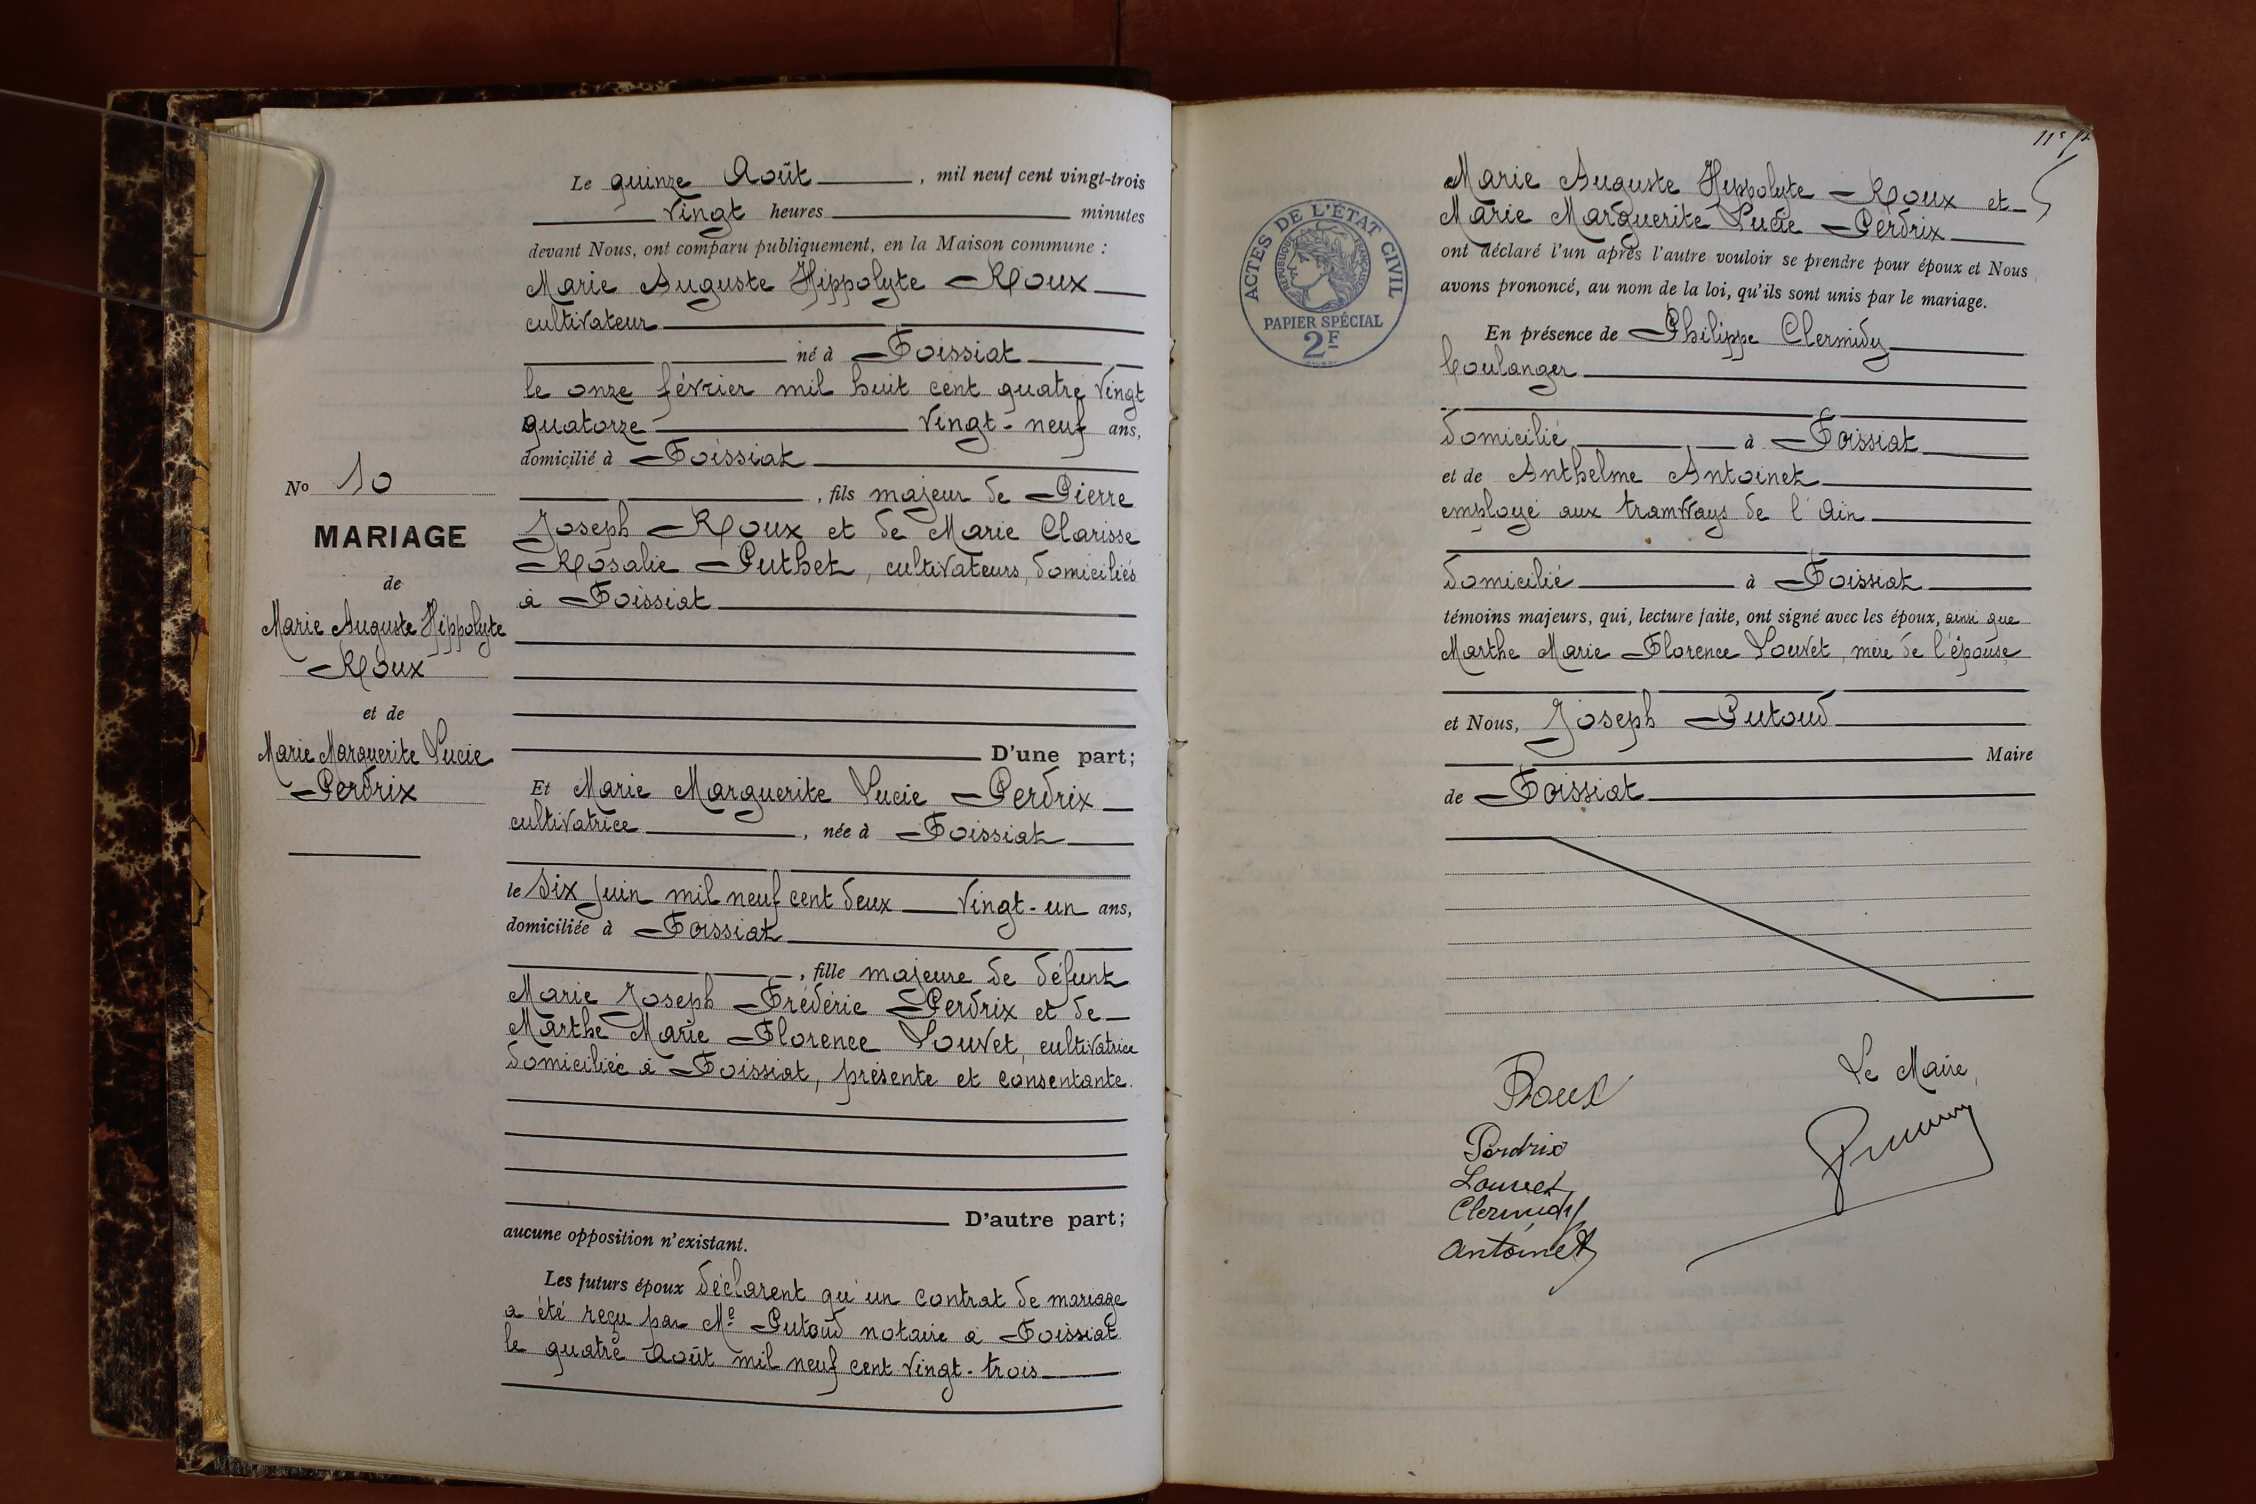 Le quinze Août, mil neuf cent vingt-trois
vingt heures minutes
devant Nous, ont comparu publiquement, en la Maison commune :
Marie Auguste Hippolyte Roux
cultivateur
né à Foissiat
le onze février mil huit cent quatre vingt
quatorze vingt-neuf ans,
domicilié à Foissiat
, fils majeur de Pierre
Joseph Roux et de Marie Clarisse
Rosalie Puthet, cultivateurs, domiciliés
à Foissiat
D'une part;
Et Marie Marguerite Lucie Perdrix
cultivatrice, née à Foissiat
le six juin mil neuf cent deux vingt-un ans,
domiciliée à Foissiat
, fille majeure de défunt
Marie Joseph Frédéric Perdrix et de
Marthe Marie Florence Louvet, cultivatrice
domiciliée à Foissiat, présente et consentante.
D'autre part;
aucune opposition n'existant.
Les futurs époux déclarent qu'un contrat de mariage
a été reçu par Me Putoud notaire à Foissiat
le quatre Août mil neuf cent vingt-trois
No 10
MARIAGE
de
Marie Auguste Hippolyte
Roux
et de
Marie Marguerite Lucie
Perdrix
ACTES DE L'ÉTAT CIVIL
RÉPUBLIQUE FRANÇAISE
PAPIER SPÉCIAL
2F
Marie Auguste Hippolyte Roux et
Marie Marguerite Lucie Perdrix
ont déclaré l'un après l'autre vouloir se prendre pour époux et Nous
avons prononcé, au nom de la loi, qu'ils sont unis par le mariage.
En présence de Philippe Clermidy
boulanger
domicilié à Foissiat
et de Anthelme Antoinet
employé aux tramways de l'Ain
domicilié à Foissiat
témoins majeurs, qui, lecture faite, ont signé avec les époux, ainsi que
Marthe Marie Florence Louvet, mère de l'épouse
et Nous, Joseph Putoud
Maire
de Foissiat
Le Maire,
Roux
Perdrix
Louvet
Clermidy
Antoinet